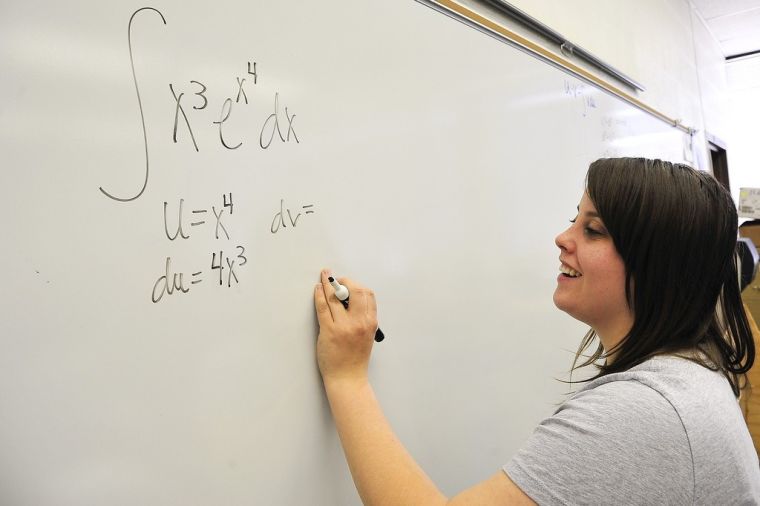 ∫ x³ e^x⁴ dx
u = x⁴ dv =
du = 4x³